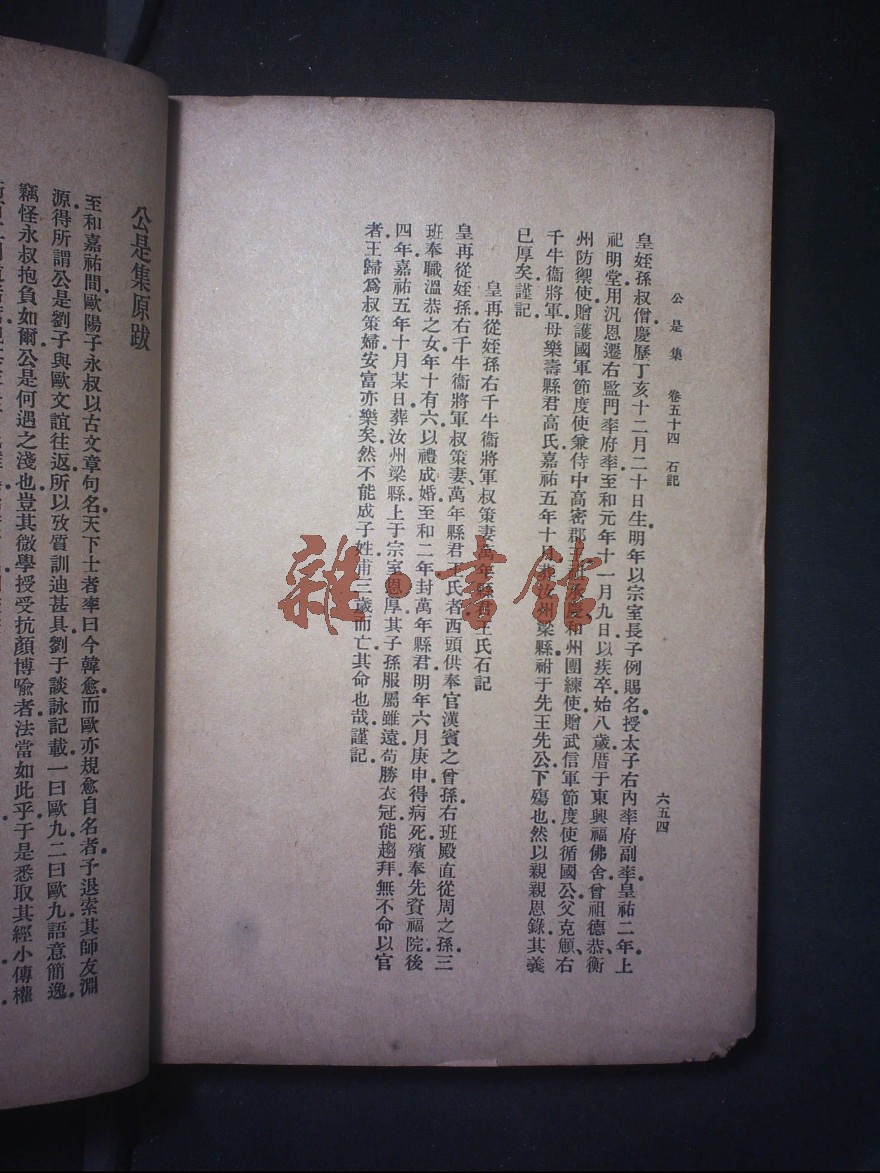 公是集　卷五十四　石記　六五四
皇姪孫叔僧慶歷丁亥十二月二十日生明年以宗室長子例賜名授太子右內率府副率皇祐二年上
祀明堂用汎恩遷右監門率府率至和元年十一月九日以疾卒始八歲厝于東興福佛舍曾祖德恭衡
州防禦使贈護國軍節度使兼侍中高密郡王祖承慶和州團練使贈武信軍節度使循國公父克頎右
千牛衞將軍母樂壽縣君高氏嘉祐五年十月葬汝州梁縣祔于先王先公下殤也然以親親恩錄其義
已厚矣謹記
皇再從姪孫右千牛衞將軍叔策妻萬年縣君王氏石記
皇再從姪孫右千牛衞將軍叔策妻萬年縣君王氏者西頭供奉官漢賓之曾孫右班殿直從周之孫三
班奉職溫恭之女年十有六以禮成婚至和二年封萬年縣君明年六月庚申得病死殯奉先資福院後
四年嘉祐五年十月某日葬汝州梁縣上于宗室恩厚其子孫服屬雖遠苟勝衣冠能趨拜無不命以官
者王歸爲叔策婦安富亦樂矣然不能成子姓甫三歲而亡其命也哉謹記
雜·書館
公是集原跋
至和嘉祐間歐陽子永叔以古文章句名天下士者率曰今韓愈而歐亦規愈自名者予退索其師友淵
源得所謂公是劉子與歐文誼往返所以攷質訓迪甚具劉于談詠記載一曰歐九二曰歐九語意簡逸
竊怪永叔抱負如爾公是何遇之淺也豈其微學授受抗顏博喩者法當如此乎于是悉取其經小傳權